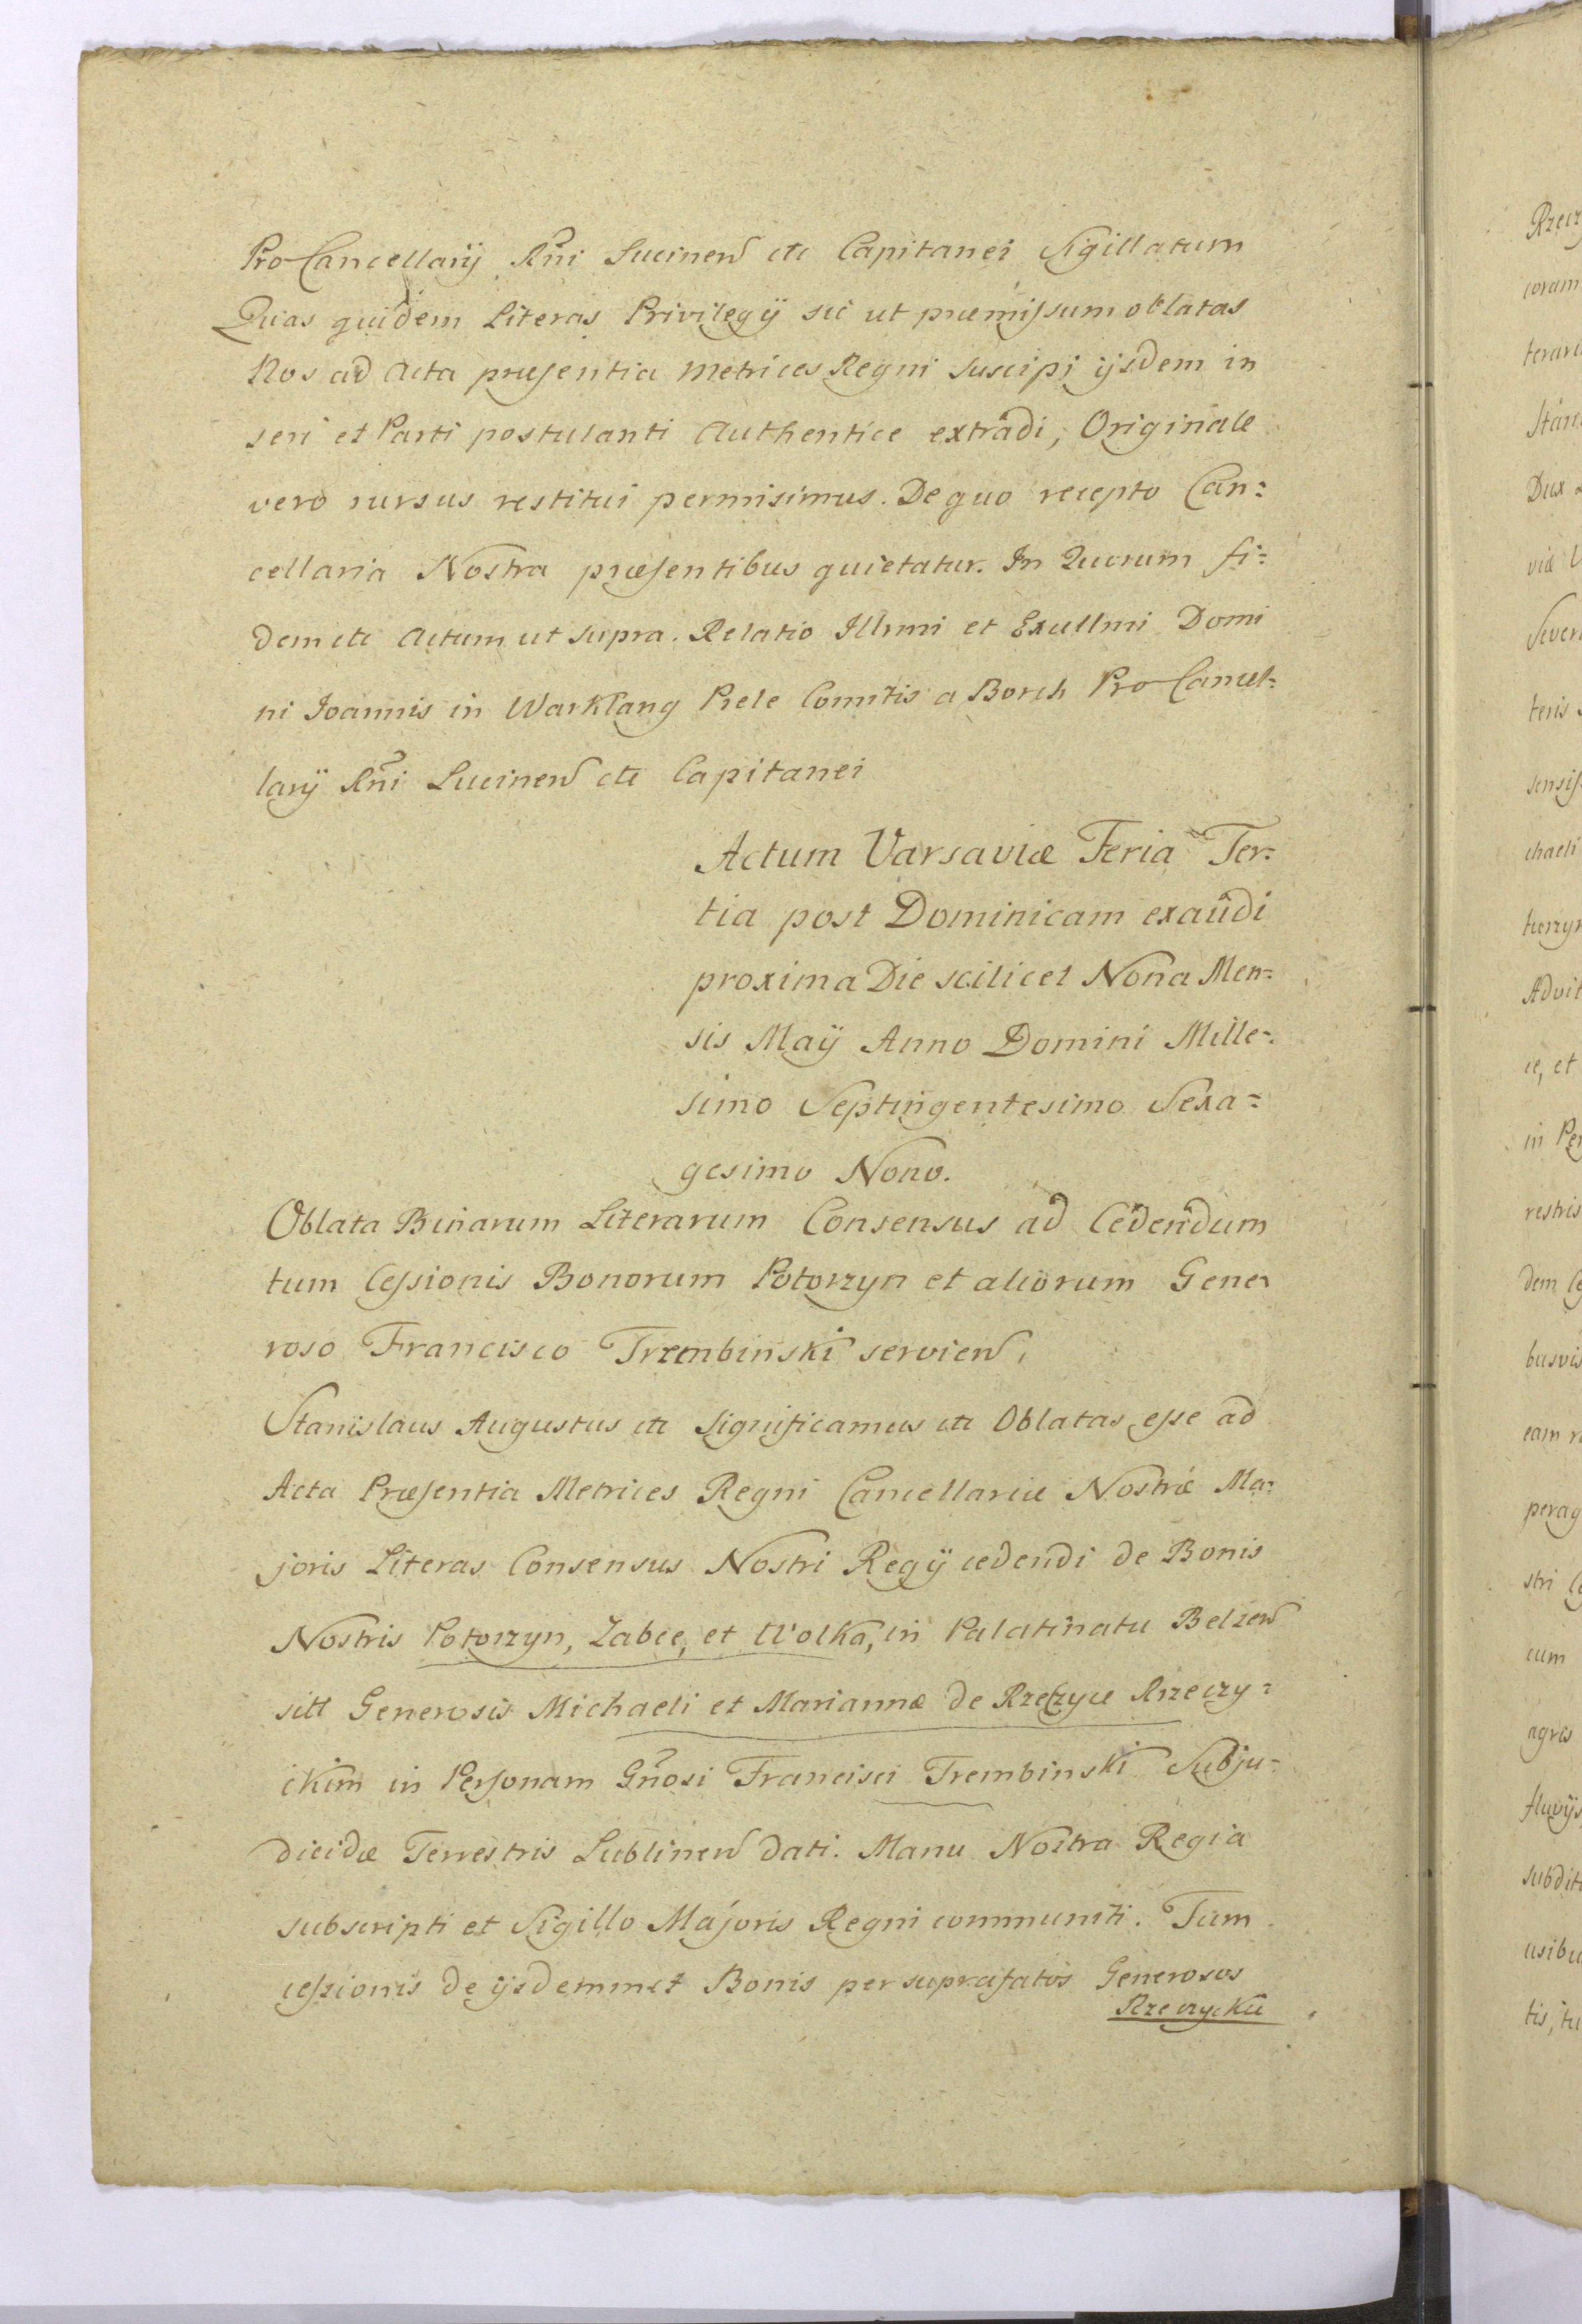 Pro Cancellarij Rñi Lucinen̄ etc Capitanei Sigillatum
Quas quidem Literas Privilegij sic ut præmissum oblatas
Nos ad Acta præsentia Metrices Regni suscipi ijsdem in
seri et Parti postulanti Authentice extradi, Originale
vero rursus restitui permisimus. De quo recepto Can=
cellaria Nostra præsentibus quietatur. In Quorum fi=
dem etc Actum ut supra. Relatio Illmi et Excellmi Domi
ni Joannis in Warklang Prele Comitis a Borch Pro Cancel=
larij Rñi Lucinen̄ etc Capitanei
Actum Varsaviæ Feria Ter=
tia post Dominicam exaudi
proxima Die scilicet Nona Men=
sis Maij Anno Domini Mille=
simo Septingentesimo Sexa=
gesimo Nono.
Oblata Binarum Literarum Consensus ad Cedendum
tum Cessionis Bonorum Potorzyn et aliorum Gene
roso Francisco Trzembinski servien̄.
Stanislaus Augustus etc Significamus etc Oblatas esse ad
Acta Præsentia Metrices Regni Cancellariæ Nostræ Ma=
joris Literas Consensus Nostri Regij cedendi de Bonis
Nostris Potorzyn, Zabce, et Wolka, in Palatinatu Belzen̄
sitt Generosis Michaeli et Mariannæ de Rzeczyce Rzeczy=
ckim in Personam Gñosi Francisci Trembinski Subju=
dicidæ Terrestris Lublinen̄ dati. Manu Nostra Regia
subscripti et Sigillo Majoris Regni communiti. Tum
cessionis de ijsdemmet Bonis per suprafatos Generosos
Rzeczyckie
Rzecz
coram
terar
Stan
Dux
viæ
Sever
teris
sensis
chaeli
Advit
ce, et
in Per
restris
dem
busvis
eam
perag
stri
cum
agris
fluvijs
subdit
usibu
tis, tu